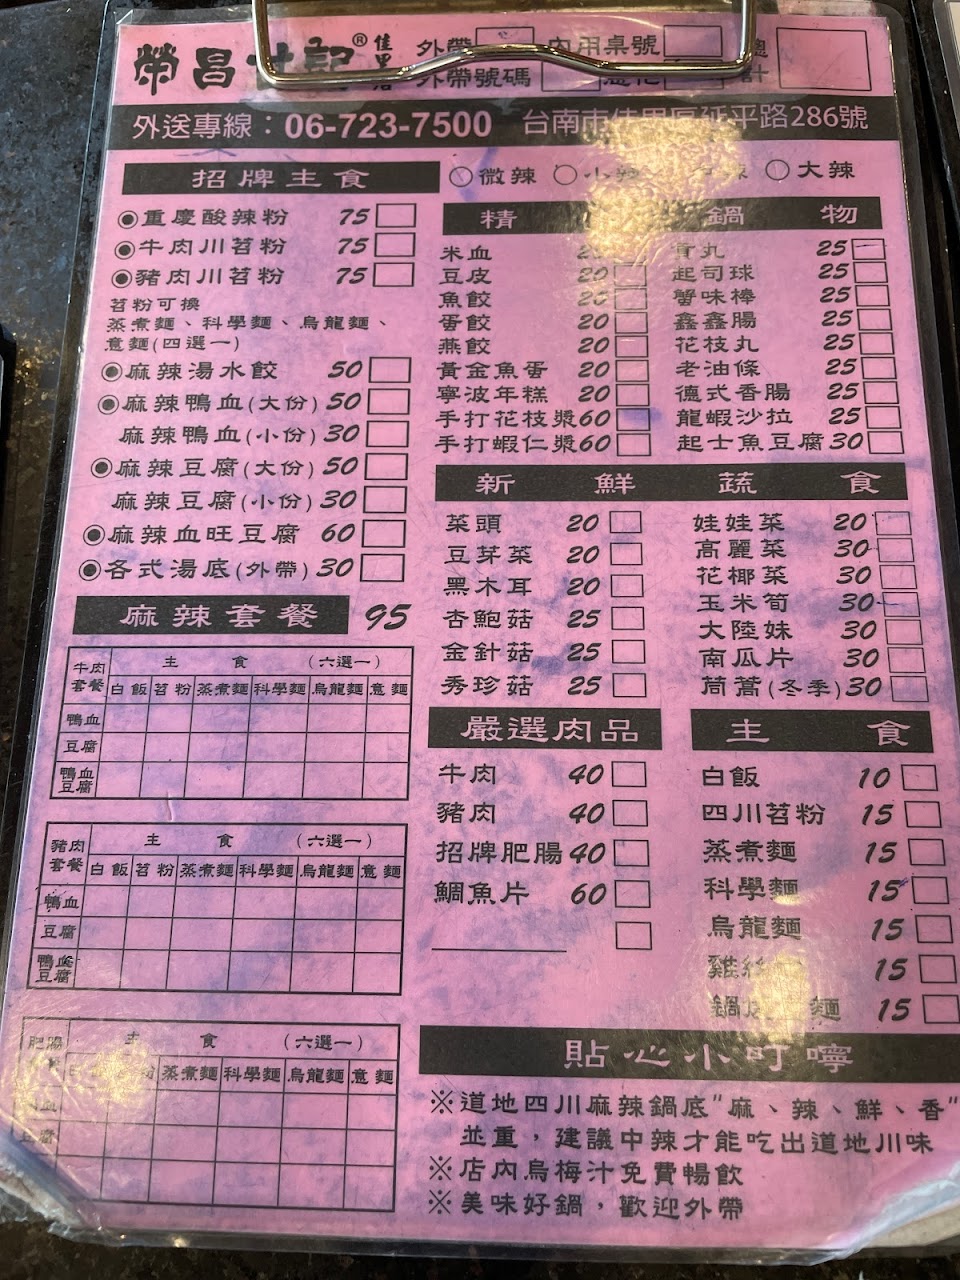 榮昌 記® 佳里
外帶 內用桌號 總計
外帶號碼
外送專線：06-723-7500 台南市佳里區延平路286號
招牌主食
微辣 小辣 辣 大辣
重慶酸辣粉 75
牛肉川苕粉 75
豬肉川苕粉 75
苕粉可換
蒸煮麵、科學麵、烏龍麵、
意麵(四選一)
麻辣湯水餃 50
麻辣鴨血(大份) 50
麻辣鴨血(小份) 30
麻辣豆腐(大份) 50
麻辣豆腐(小份) 30
麻辣血旺豆腐 60
各式湯底(外帶) 30
麻辣套餐 95
牛肉套餐 主食 (六選一)
白飯 苕粉 蒸煮麵 科學麵 烏龍麵 意麵
鴨血
豆腐
鴨血豆腐
豬肉套餐 主食 (六選一)
白飯 苕粉 蒸煮麵 科學麵 烏龍麵 意麵
鴨血
豆腐
鴨血豆腐
肥腸 主食 (六選一)
蒸煮麵 科學麵 烏龍麵 意麵
豆腐
精 鍋物
米血
豆皮 20
魚餃 20
蛋餃 20
燕餃 20
黃金魚蛋 20
寧波年糕 20
手打花枝漿 60
手打蝦仁漿 60
貢丸 25
起司球 25
蟹味棒 25
鑫鑫腸 25
花枝丸 25
老油條 25
德式香腸 25
龍蝦沙拉 25
起士魚豆腐 30
新鮮蔬食
菜頭 20
豆芽菜 20
黑木耳 20
杏鮑菇 25
金針菇 25
秀珍菇 25
娃娃菜 20
高麗菜 30
花椰菜 30
玉米筍 30
大陸妹 30
南瓜片 30
茼蒿(冬季) 30
嚴選肉品
牛肉 40
豬肉 40
招牌肥腸 40
鯛魚片 60
主食
白飯 10
四川苕粉 15
蒸煮麵 15
科學麵 15
烏龍麵 15
雞絲 15
鍋 麵 15
貼心小叮嚀
※道地四川麻辣鍋底"麻、辣、鮮、香"
並重，建議中辣才能吃出道地川味
※店內烏梅汁免費暢飲
※美味好鍋，歡迎外帶